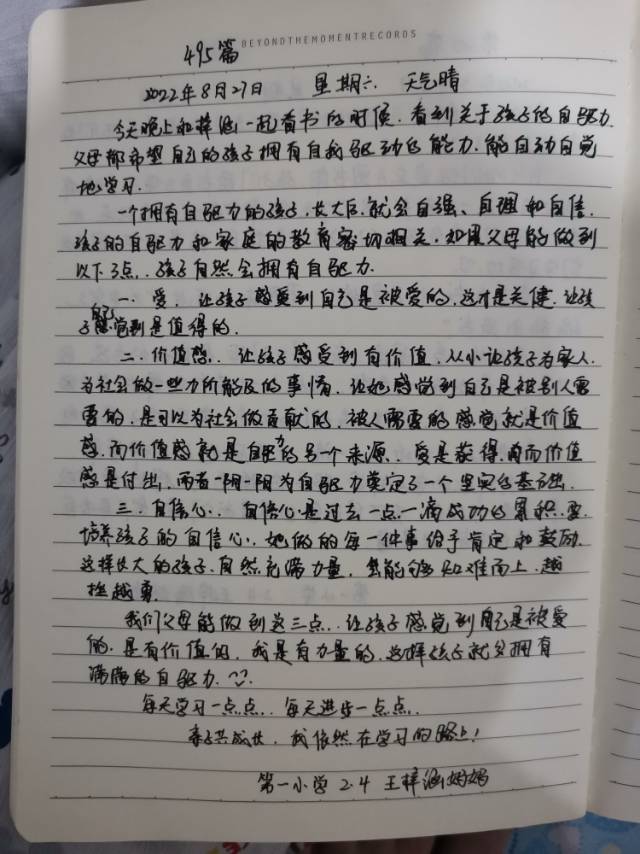 495篇 BEYONDTHEMOMENTRECORDS
2022年8月27日 星期六 天气晴
今天晚上和梓涵一起看书的时候,看到关于孩子的自驱力.
父母都希望自己的孩子拥有自我驱动的能力.能自动自觉
地学习.
一个拥有自驱力的孩子,长大后就会自强、自理和自信.
孩子的自驱力和家庭的教育密切相关,如果父母能做到
以下3点..孩子自然会拥有自驱力.
一.爱.让孩子感受到自己是被爱的,这才是关健.让孩
子自己感觉到是值得的.
二.价值感..让孩子感受到有价值,从小让孩子为家人.
为社会做一些力所能及的事情.让她感觉到自己是被别人需
要的.是可以为社会做贡献的.被人需要的感觉就是价值
感.而价值感就是自驱力的另一个来源..爱是获得.而价值
感是付出.两者一阴一阳为自驱力奠定了一个坚实的基础.
三.自信心..自信心是过去一点一滴成功的累积.要
培养孩子的自信心..她做的每一件事给予肯定和鼓励.
这样长大的孩子.自然充满力量,就能够知难而上.越
挫越勇.
我们父母能做到这三点..让孩子感觉到自己是被爱
的.是有价值的,我是有力量的.这样孩子就会拥有
满满的自驱力.
每天学习一点点..每天进步一点点..
亲子共成长.我依然在学习的路上!
第一小学2.4 王梓涵妈妈